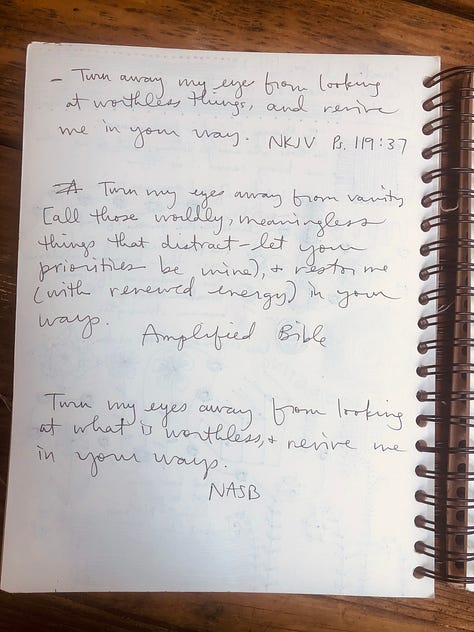 - Turn away my eyes from looking
at worthless things, and revive
me in your way. NKJV Ps. 119:37
Turn my eyes away from vanity
[all those worldly, meaningless
things that distract - let your
priorities be mine), & restore me
(with renewed energy) in your
ways.
Amplified Bible
Turn my eyes away from looking
at what is worthless, & revive me
in your ways.
NASB